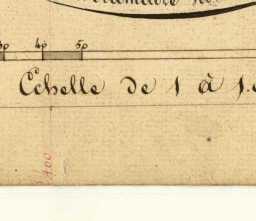 40 50
Echelle de 1 à 1.
100